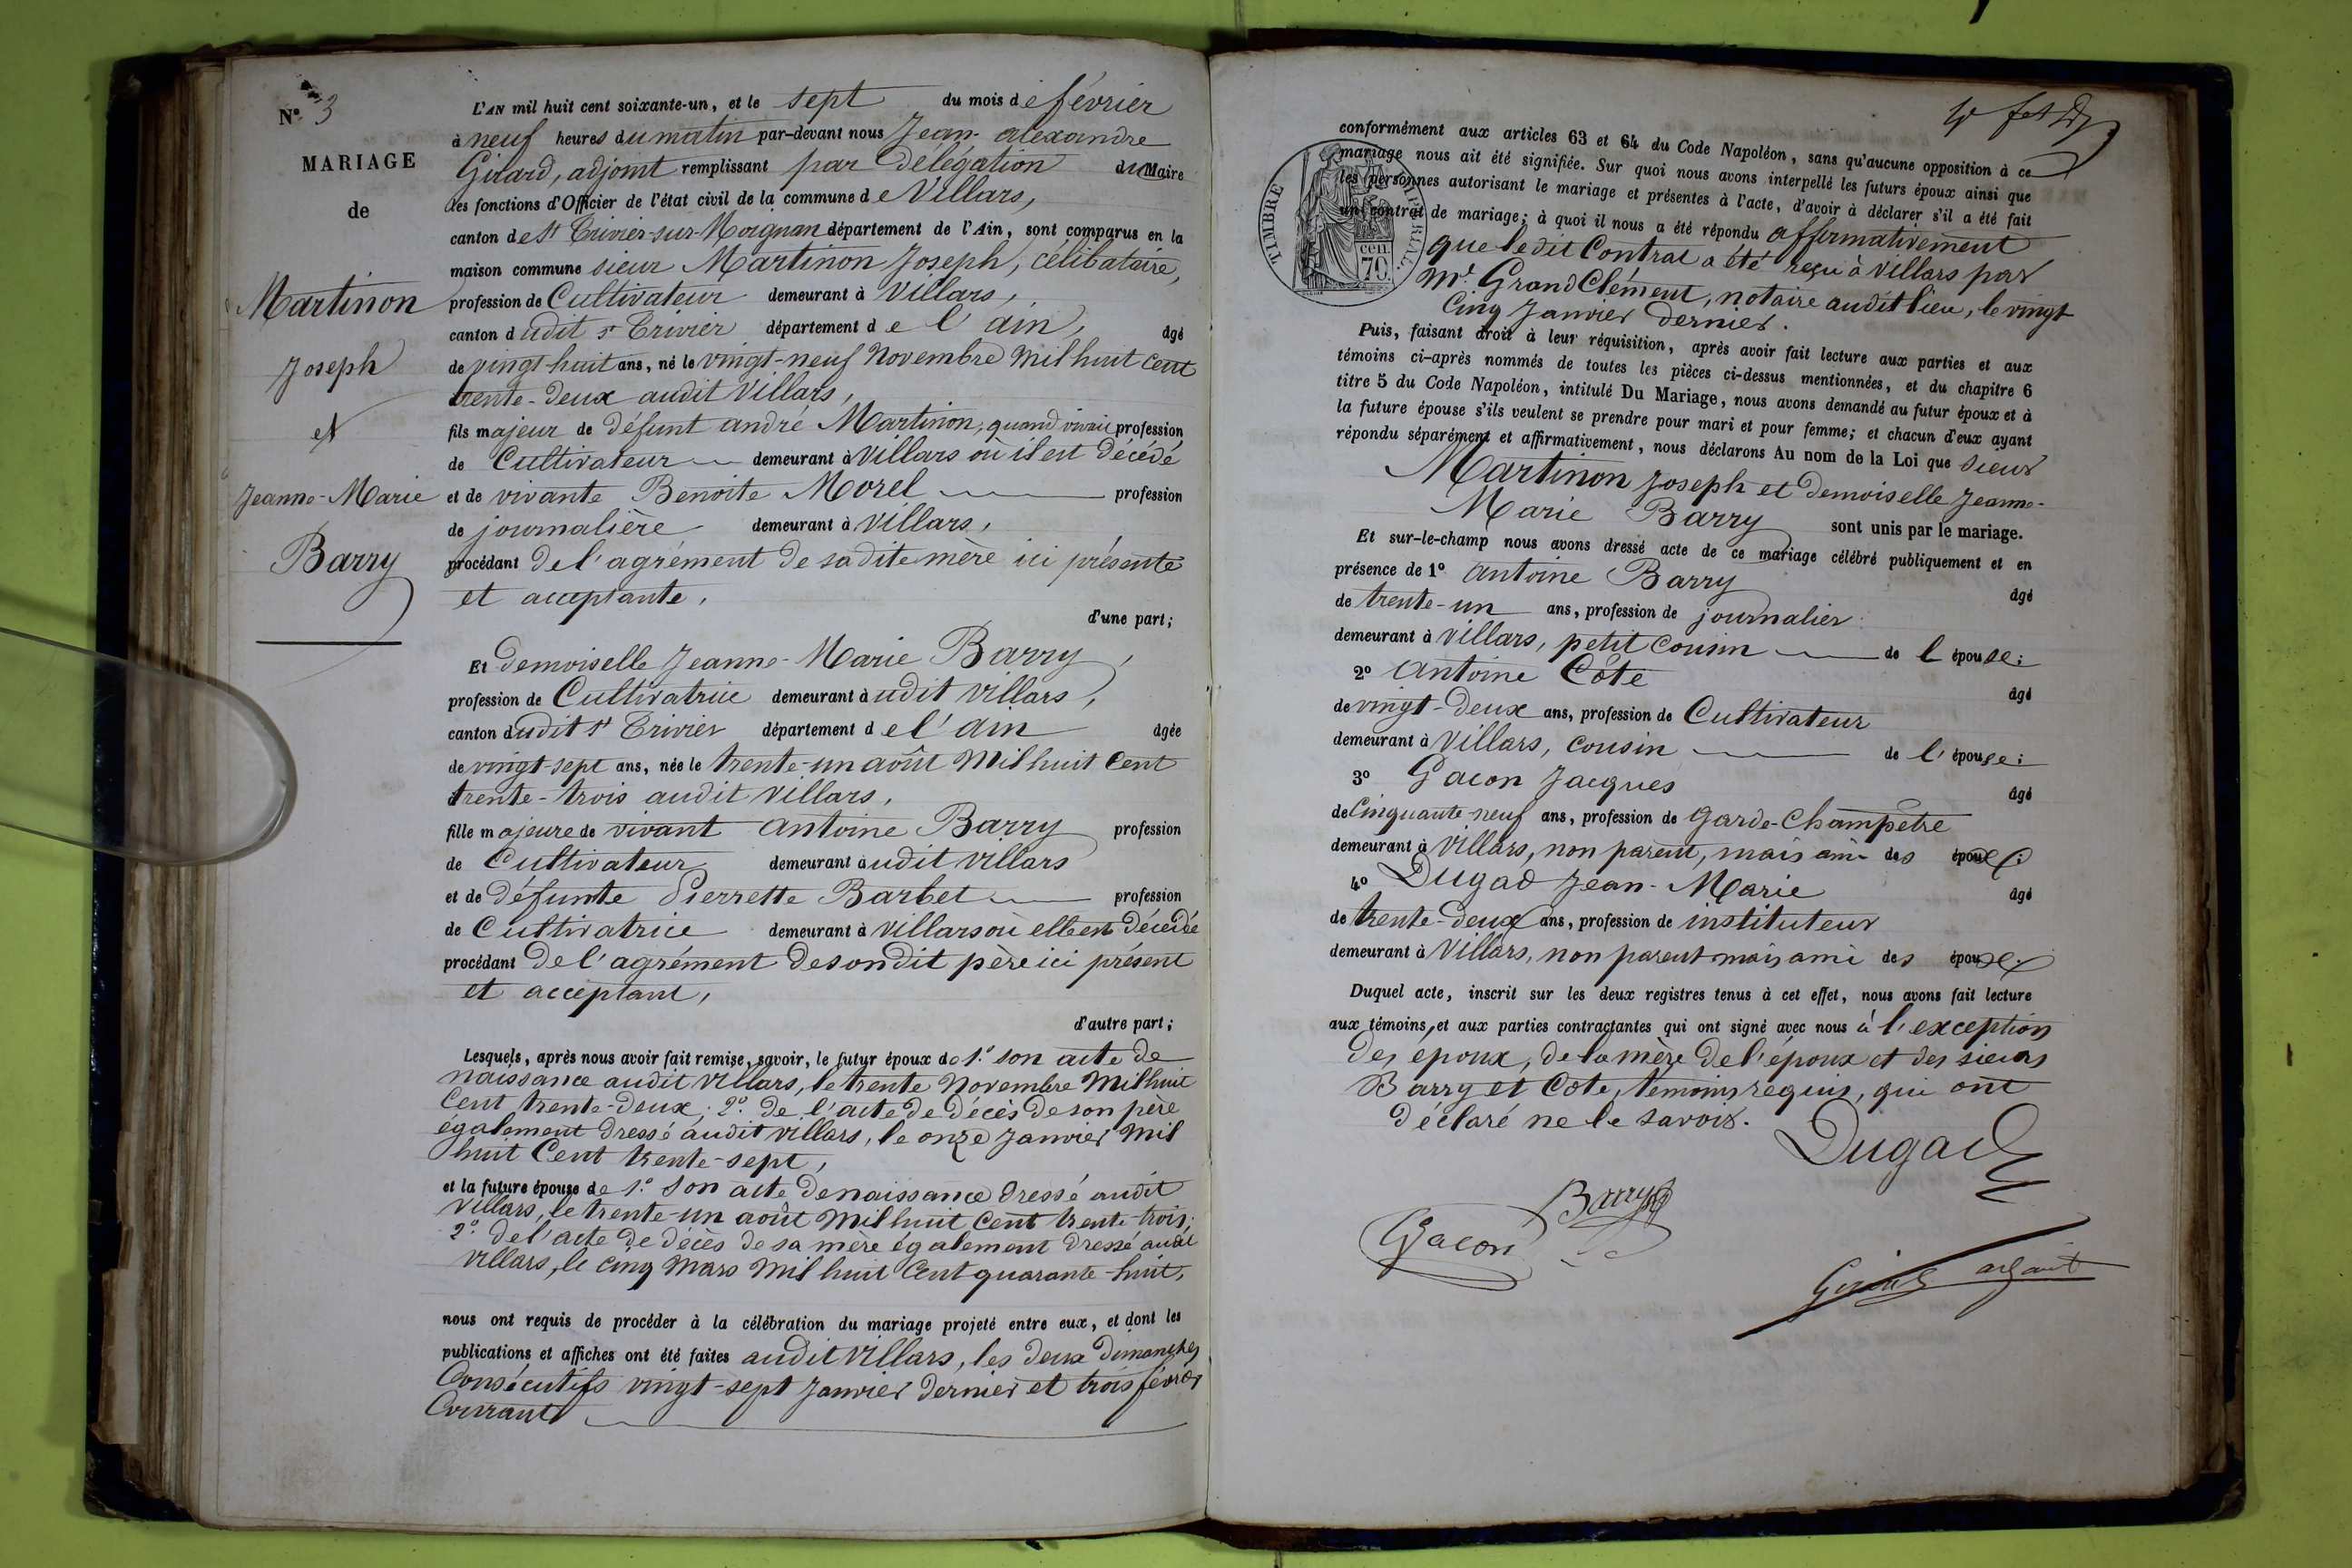 N.° 3
MARIAGE
de
Martinon
Joseph
et
Jeanne-Marie
Barry
L'AN mil huit cent soixante-un, et le sept du mois de février
à neuf heures du matin par-devant nous Jean-alexandre
Girard, adjoint remplissant par Délégation du Maire
les fonctions d'Officier de l'état civil de la commune de Villars,
canton de St Trivier-sur-Moignan département de l'Ain, sont comparus en la
maison commune sieur Martinon Joseph, célibataire,
profession de Cultivateur demeurant à Villars,
canton dudit St Trivier département de l'ain, âgé
de vingt-huit ans, né le vingt-neuf Novembre Mil huit Cent
trente-Deux audit Villars,
fils majeur de défunt andré Martinon, quand vivait profession
de Cultivateur demeurant à Villars où il est Décédé
et de vivante Benoite Morel profession
de journalière demeurant à Villars,
procédant De l'agrément De sadite mère ici présente
et acceptante,
d'une part;
Et Demoiselle Jeanne-Marie Barry,
profession de Cultivatrice demeurant audit villars,
canton dudit St Trivier département de l'ain âgée
de vingt-sept ans, née le trente-un août Mil huit Cent
trente-trois audit Villars,
fille majeure de vivant antoine Barry profession
de Cultivateur demeurant audit villars
et de défunte Pierrette Barbet profession
de Cultivatrice demeurant à Villars où elle est Décédée
procédant De l'agrément De son Dit père ici présent
et acceptant,
d'autre part;
Lesquels, après nous avoir fait remise, savoir, le futur époux de 1.° son acte de
naissance audit Villars, le trente Novembre Mil huit
Cent trente-Deux; 2.° De l'acte de Décès de son père
également Dressé audit villars, le onze Janvier Mil
huit Cent trente-sept,
et la future épouse de 1.° Son acte De naissance Dressé audit
Villars, le trente-un août Mil huit Cent trente-trois;
2.° De l'acte de Décès de sa mère également Dressé audit
Villars, le cinq Mars Mil huit Cent quarante-huit,
nous ont requis de procéder à la célébration du mariage projeté entre eux, et dont les
publications et affiches ont été faites audit Villars, les Deux Dimanches
Consécutifs vingt-sept Janvier Dernier et trois février
Courant
conformément aux articles 63 et 64 du Code Napoléon, sans qu'aucune opposition à ce
mariage nous ait été signifiée. Sur quoi nous avons interpellé les futurs époux ainsi que
les personnes autorisant le mariage et présentes à l'acte, d'avoir à déclarer s'il a été fait
un contrat de mariage; à quoi il nous a été répondu affirmativement
TIMBRE IMPÉRIAL
cen
70.
que ledit Contrat a été reçu à Villars par
Me GrandClément, notaire audit lieu, le vingt
Cinq Janvier Dernier.
Puis, faisant droit à leur réquisition, après avoir fait lecture aux parties et aux
témoins ci-après nommés de toutes les pièces ci-dessus mentionnées, et du chapitre 6
titre 5 du Code Napoléon, intitulé Du Mariage, nous avons demandé au futur époux et à
la future épouse s'ils veulent se prendre pour mari et pour femme; et chacun d'eux ayant
répondu séparément et affirmativement, nous déclarons Au nom de la Loi que sieur
Martinon Joseph et Demoiselle Jeanne-
Marie Barry sont unis par le mariage.
Et sur-le-champ nous avons dressé acte de ce mariage célébré publiquement et en
présence de 1° antoine Barry âgé
de trente-un ans, profession de journalier
demeurant à Villars, petit cousin de l'épouse;
2° antoine Côte âgé
de vingt-Deux ans, profession de Cultivateur
demeurant à Villars, cousin de l'épouse;
3° Gacon Jacques âgé
de Cinquante neuf ans, profession de garde-Champêtre
demeurant à Villars, non parent, mais ami des époux;
4° Dugad Jean-Marie âgé
de trente-Deux ans, profession de instituteur
demeurant à Villars, non parent mais ami des époux.
Duquel acte, inscrit sur les deux registres tenus à cet effet, nous avons fait lecture
aux témoins, et aux parties contractantes qui ont signé avec nous à l'exception
Des époux, de la mère De l'époux et des sieurs
Barry et Côte, témoins requis, qui ont
Déclaré ne le savoir.
Dugad
Barry
Gacon
Girard adjoint